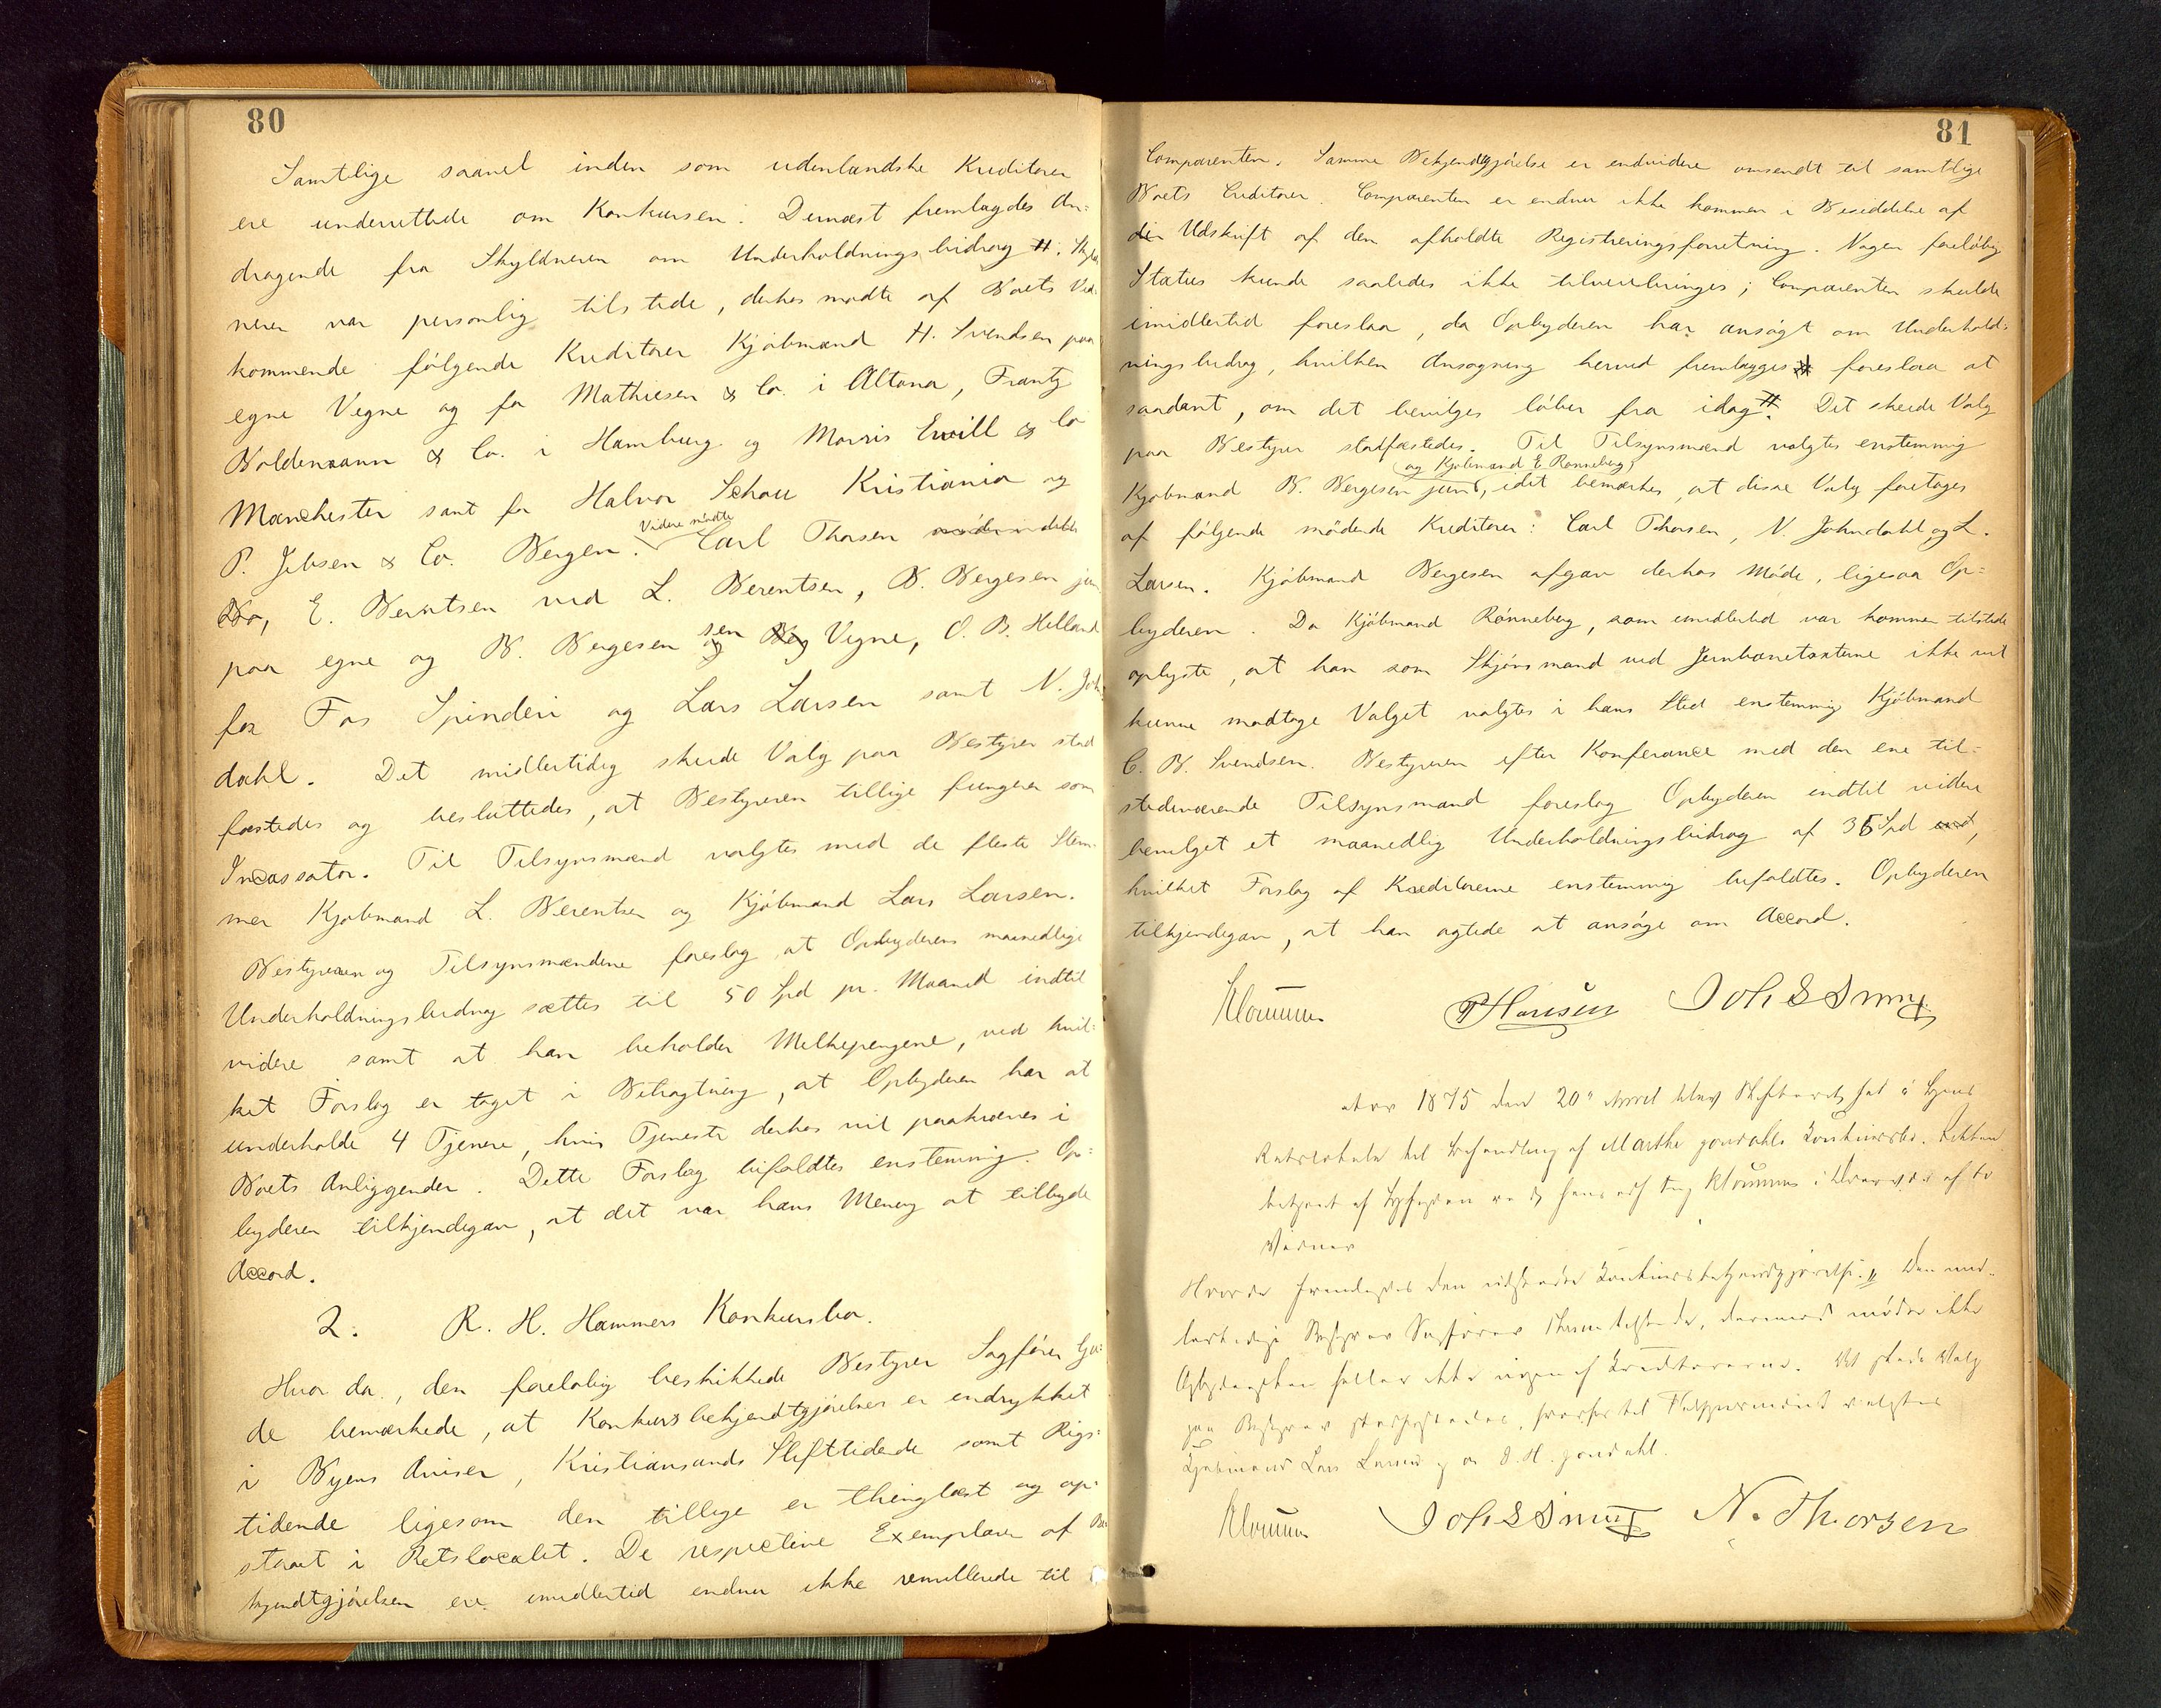 80
Samtlige saavel inden som udenlandske Kreditorer
ere underrettede om Konkursen. Dernæst fremlagdes An-
dragende fra Skyldneren om Underholdningsbidrag #. Skyld
neren var personlig tilstede, derhos mødte af Boets Ved
kommende følgende Kreditorer Kjøbmand H. Svendsen paa
egne Vegne og for Mathiesen & Co. i Altona, Frantz
Boldemann & Co. i Hamburg og Morris Ewill & Co
Manchester samt for Halvor Schou Kristiania og
P. Jebsen & Co. Bergen. Videre mødte Carl Thorsen
E. Berentsen ved L. Berentsen, B. Bergesen jun
paa egne og B. Bergesen sen Vegne, O. B. Helland
for Fos Spinderi og Lars Larsen samt N. Joh
dahl. Det midlertidig skeede Valg paa Bestyrer stad
fæstedes og besluttedes, at Bestyreren tillige fungerer som
Incassator. Til Tilsynsmænd valgtes med de fleste Stem-
mer Kjøbmand L. Berentsen og Kjøbmand Lars Larsen.
Bestyreren og Tilsynsmændene foreslog, at Opbyderens maanedlige
Underholdningsbidrag sættes til 50 Spd pr. Maaned indtil
videre samt at han beholder Melkepengene, ved hvil-
ket Forslag er taget i Betragtning, at Opbyderen har at
underholde 4 Tjenere, hvis Tjeneste derhos vil paakræves i
Boets Anliggender. Dette Forslag bifaldtes enstemmig. Op-
byderen tilkjendegav, at det var hans Mening at tilbyde
Accord.
2. R. H. Hammers Konkursbo.
Hvor da, den foreløbig beskikkede Bestyrer Sagfører
de bemærkede, at Konkursbekjendtgjørelsen er indrykket
i Byens Aviser, Kristiansands Stifttidende samt Rigs-
tidende ligesom den tillige er thinglæst og op-
slaaet i Retslocalet. De respective Exemplarer af Be
kjendtgjørelsen ere imidlertid endnu ikke remitterede til
81
Comparenten. Samme Bekjendtgjørelse er endvidere omsendt til samtlige
Boets Creditorer. Comparenten er endnu ikke kommen i Besiddelse af
Udskrift af den afholdte Registreringsforretning. Nogen foreløbig
Status kunde saaledes ikke tilveiebringes; Comparenten skulde
imidlertid foreslaa, da Opbyderen har ansøgt om Underhold-
ningsbidrag, hvilken Ansøgning herved fremlægges # foreslaa at
saadant, om det bevilges løber fra idag #. Det skeede Valg
paa Bestyrer stadfæstedes. Til Tilsynsmænd valgtes enstemmig
Kjøbmand B. Bergesen jun og Kjøbmand E Rønneberg, idet bemærkes, at disse Valg foretages
af følgende mødende Kreditorer: Carl Thorsen, N. Johndahl og L.
Larsen. Kjøbmand Bergesen afgav derhos Møde, ligesaa Op-
byderen. Da Kjøbmand Rønneberg, som imidlertid var kommen tilstede
oplyste, at han som Skjønsmand ved Jernbanetaxterne ikke vil
kunne modtage Valget valgtes i hans Sted enstemmig Kjøbmand
C. B. Svendsen. Bestyreren efter Konferance med den ene til-
stedeværende Tilsynsmand foreslog Opbyderen indtil videre
bevilget et maanedlig Underholdningsbidrag af 35 Spd,
hvilket Forslag af Kreditorerne enstemmig bifaldtes. Opbyderen
tilkjendegav, at han agtede at ansøge om Accord.
PHansen
1875 den 20 April blev Skifteret sat i Byens
Retslokale til Behandling af Marthe Jondahls Konkursbo. Retten
betjent af Byfogden ved hans Fuldmægtig i Overvær af to
Vidner
Hvorda fremlagdes den udstedte Konkursbekjendtgjørelse. Den mid-
lertidige Bestyrer Sagfører tilstede, derimod møder ikke
Opbydersken heller ikke nogen af Kreditorerne. Det skede Valg
paa Bestyrer stadfæstedes, hvorhos til Tilsynsmænd valgtes
Kjøbmand Lars Larsen og
N. Thorsen